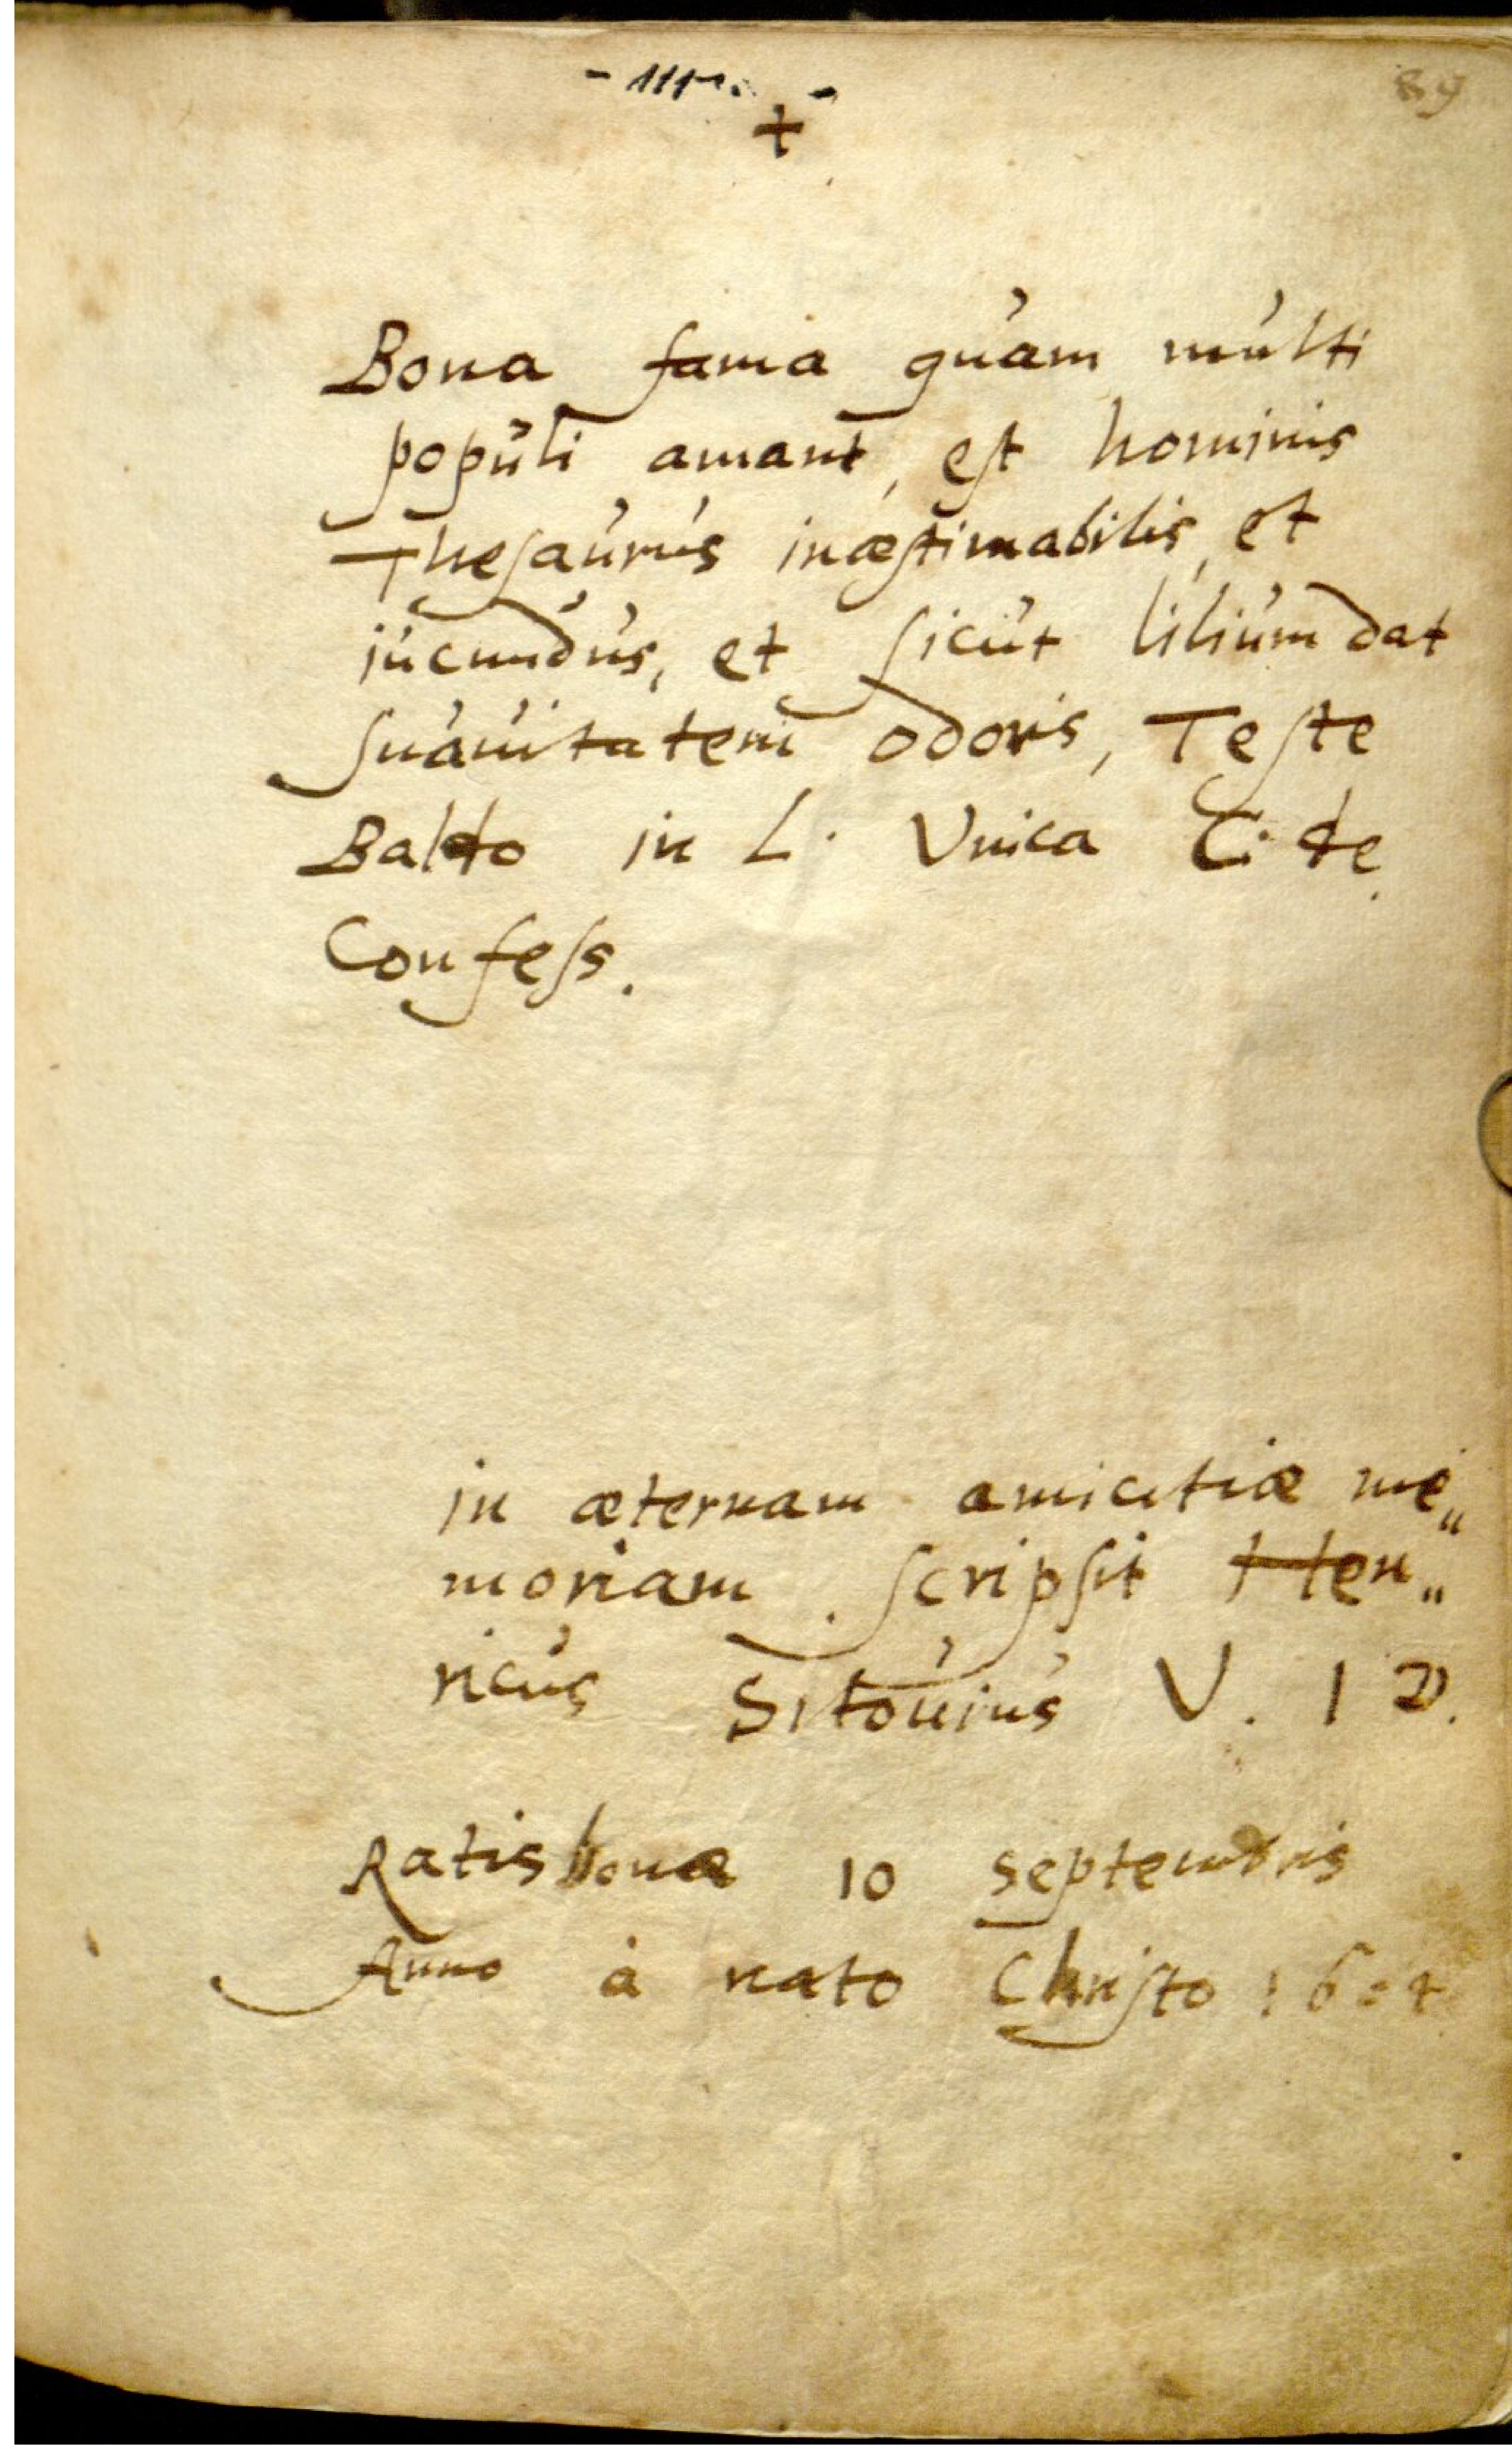 89
+
Bona fama quam multi
populi amant, est hominis
Thesaurus inæstimabilis, et
iucundus, et sicut lilium dat
suauitatem odoris, Teste
Baldo in L. Vnica C. de
Confess.
in æternam amicitiæ me„
moriam scripsit Hen„
ricus Sitouius V. I D.
Ratisbonæ 10 septembris
Anno à nato Christo